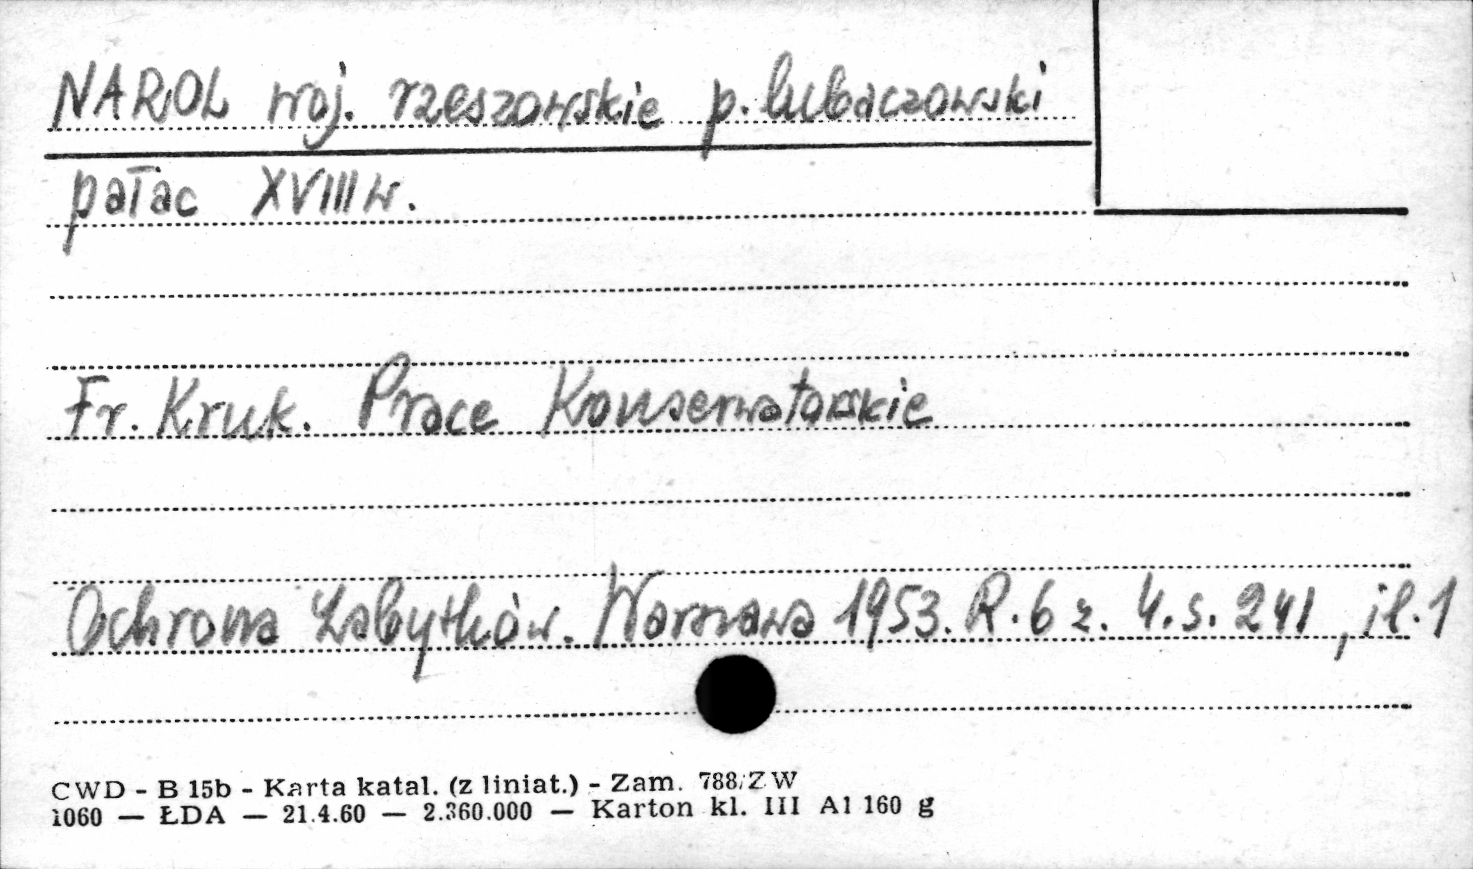 NAROL woj. rzeszowskie p. lubaczowski
pałac XVIII w.
Fr. Kruk. Prace Konserwatorskie
Ochrona Zabytków. Warszawa 1953. R. 6 z. 4. s. 241, il. 1
CWD - B 15b - Karta katal. (z liniat.) - Zam. 788/ZW
1060 — ŁDA — 21.4.60 — 2.360.000 — Karton kl. III A1 160 g